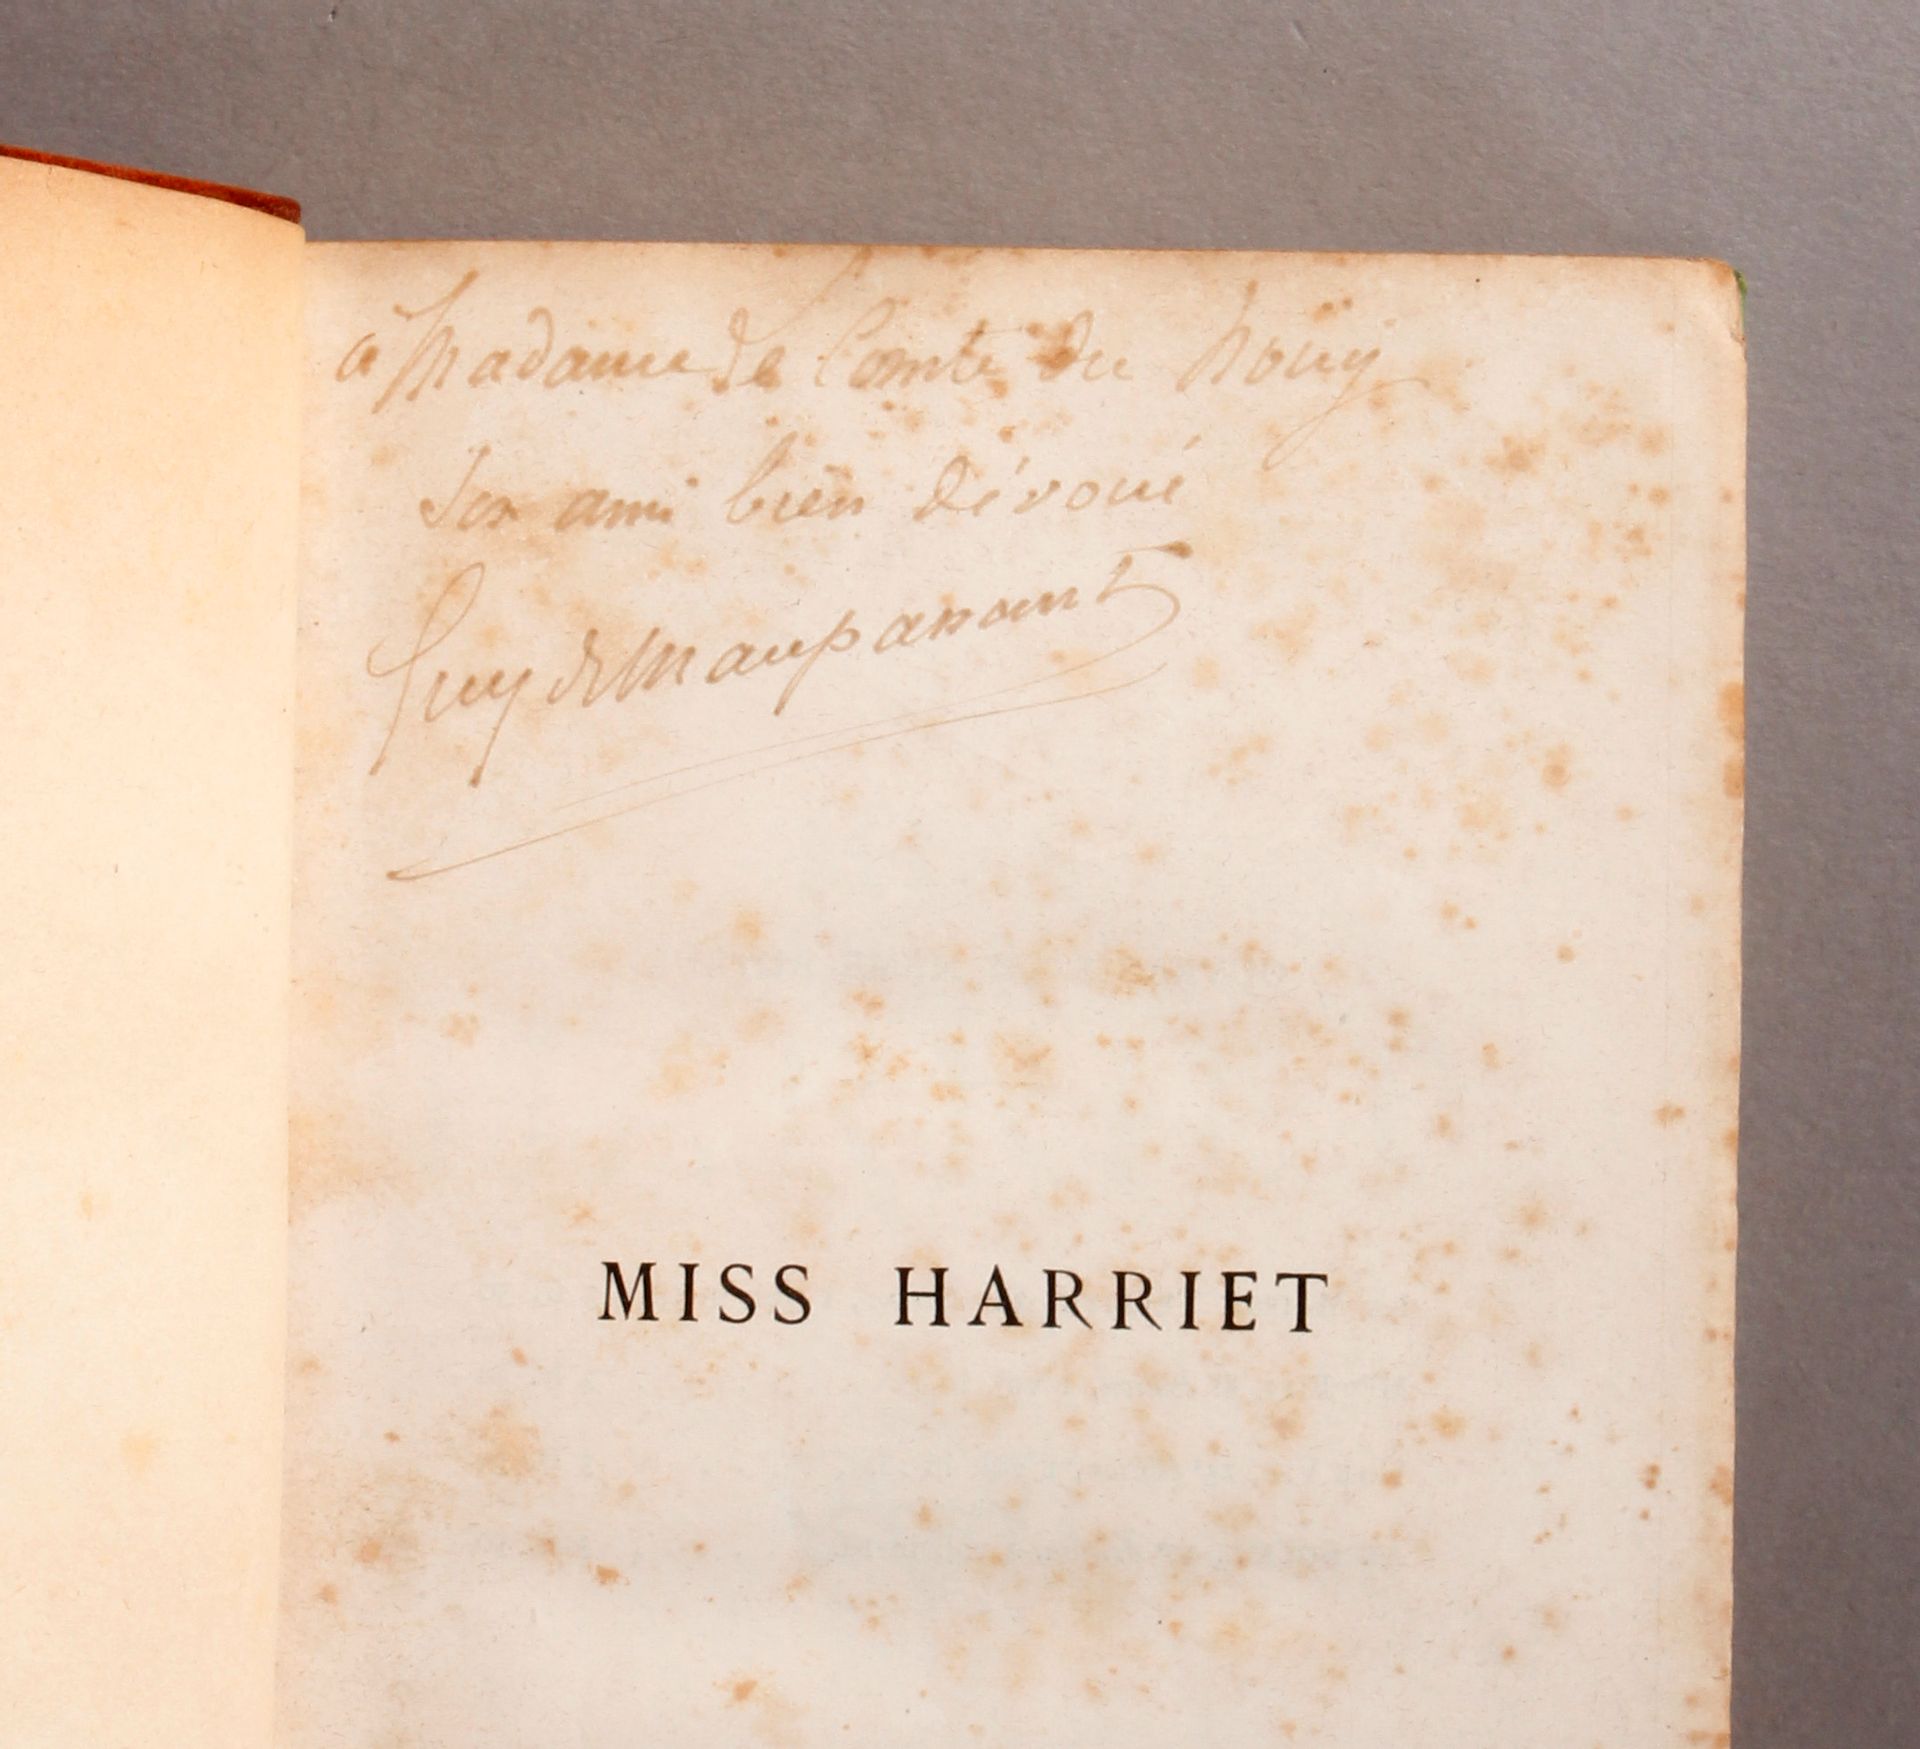 à Madame Le Comte du Noüy
son ami bien dévoué
Guy de Maupassant
MISS HARRIET